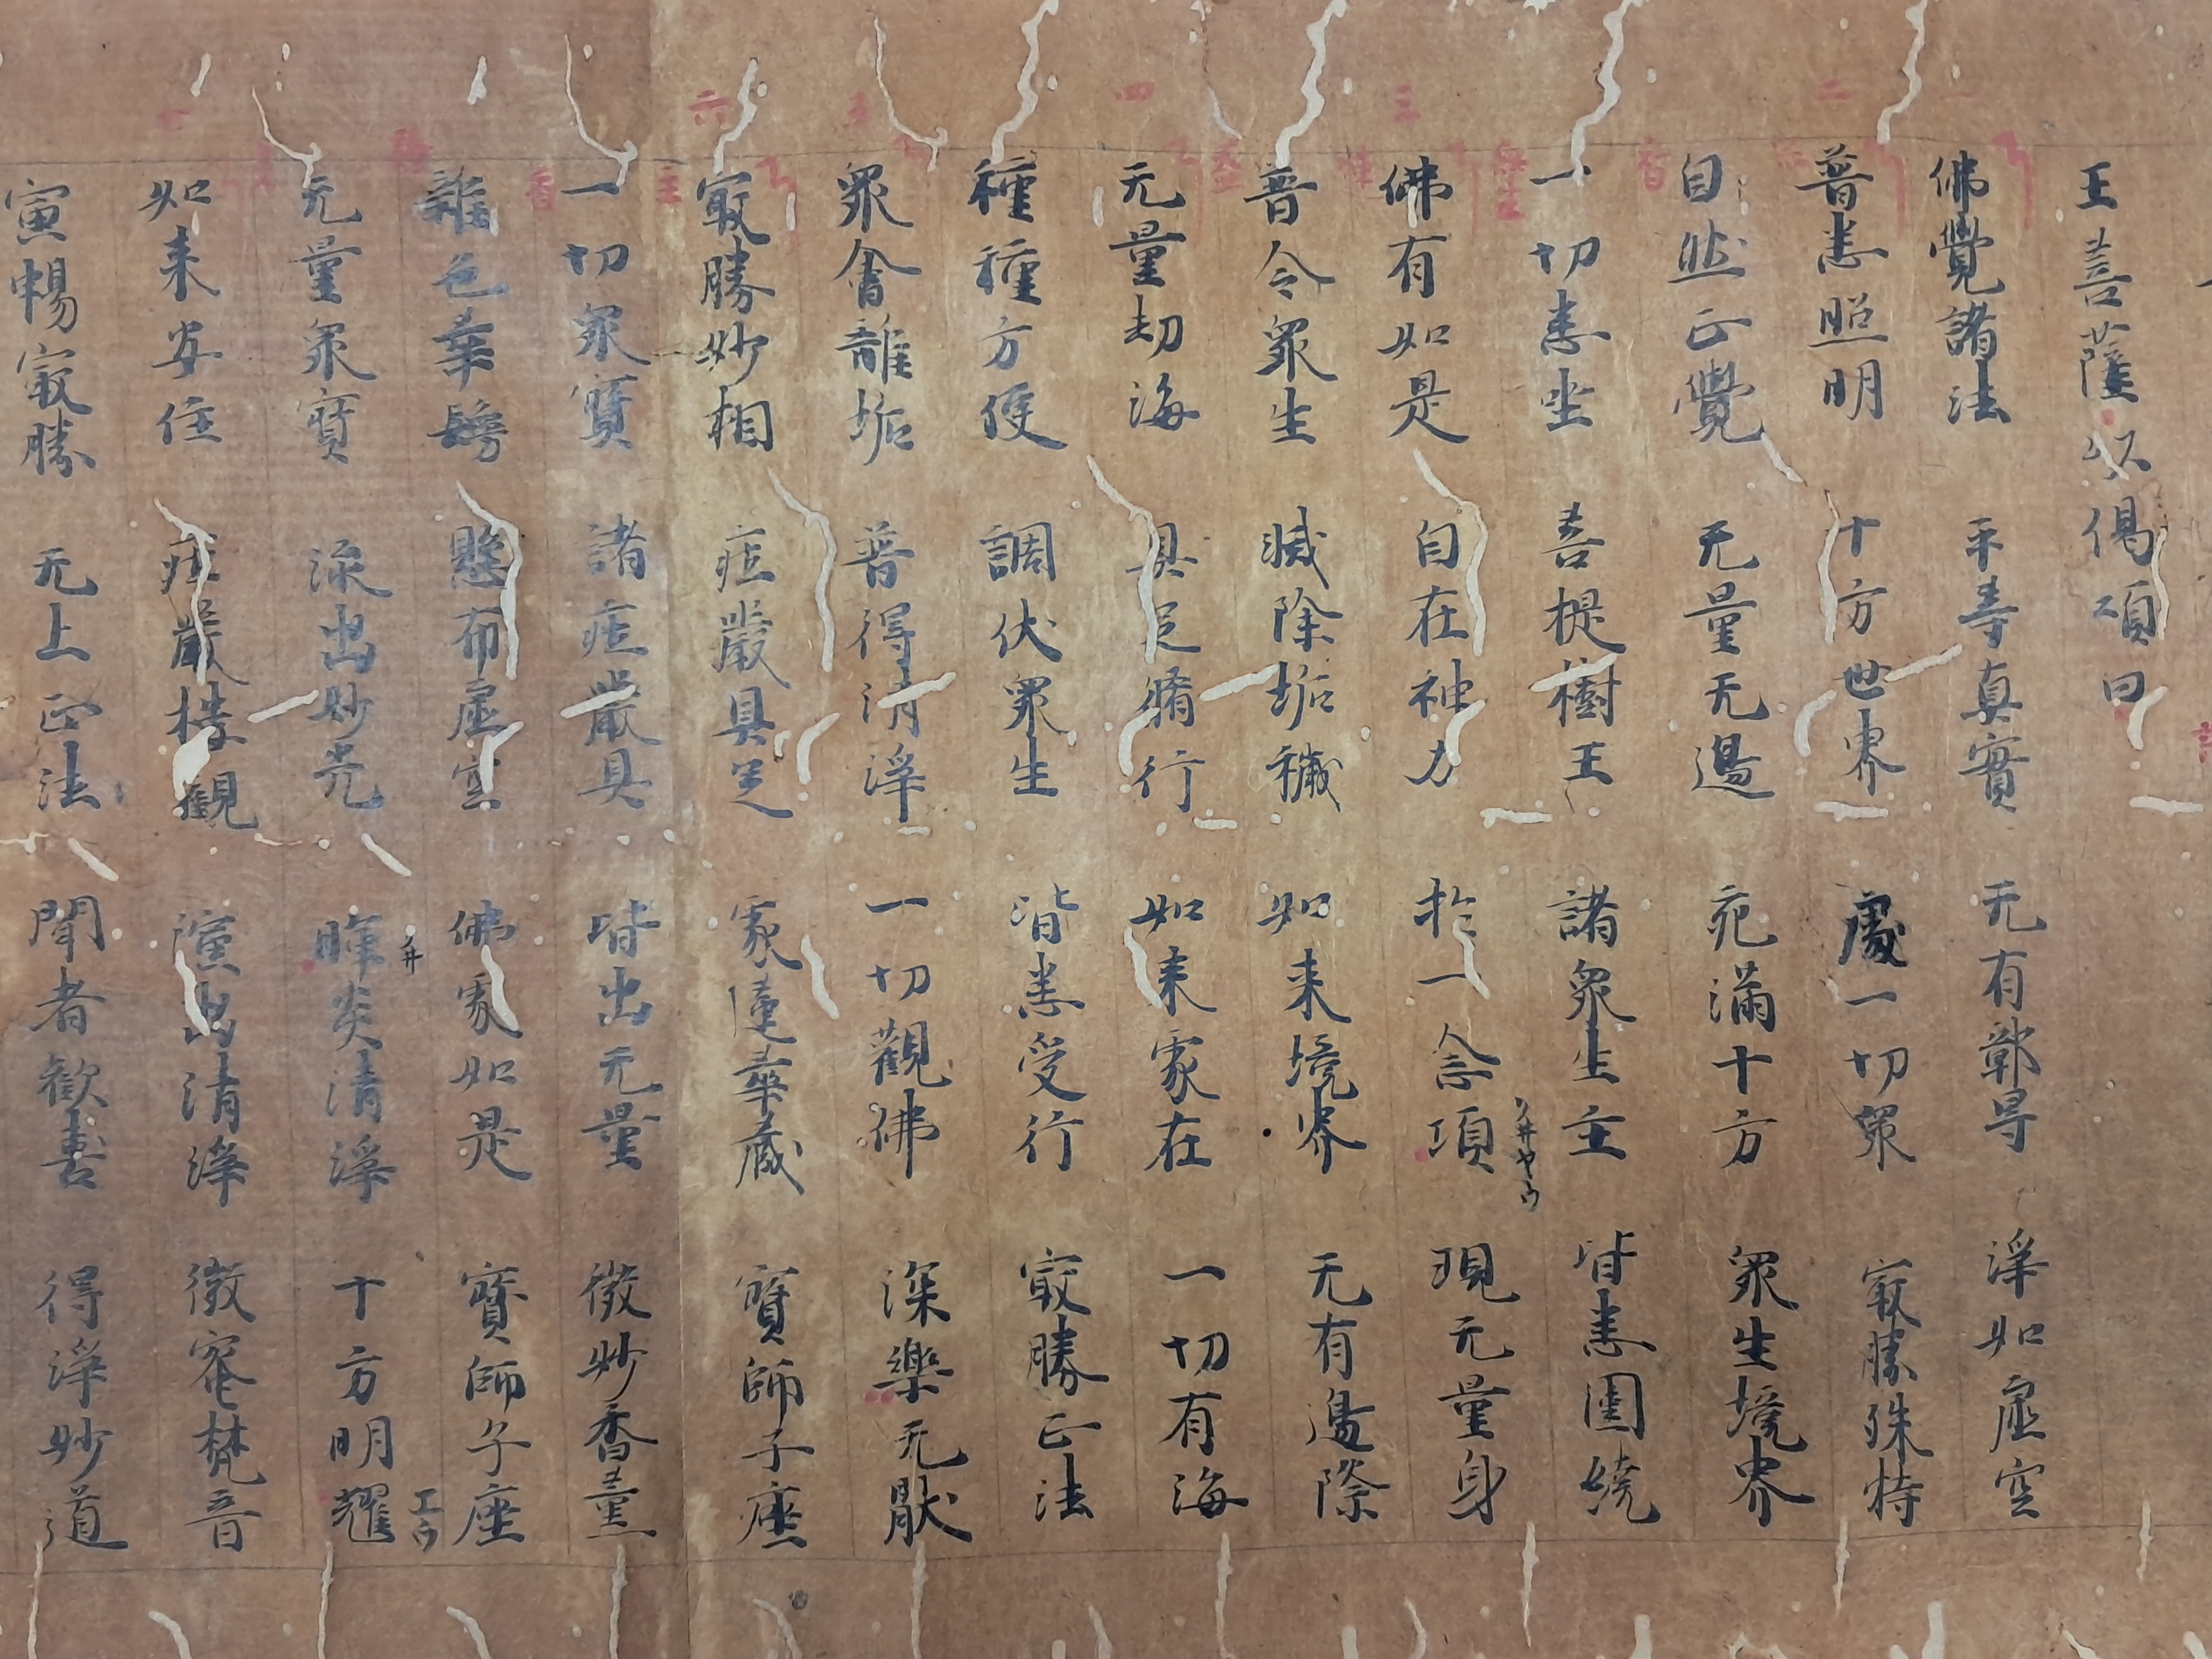 王菩薩以偈頌曰
佛覺諸法 平等真實 无有鄣导 淨如虛空
普悉照明 十方世界 處一切眾 冣勝殊特
自然正覺 无量无邊 充滿十方 眾生境界
一切悉坐 菩提樹王 諸眾生主 皆悉圍繞
佛有如是 自在神力 於一念頃 現无量身
普令眾生 滅除垢穢 如来境界 无有邊際
无量劫海 具足脩行 如来處在 一切有海
種種方便 調伏眾生 皆悉受行 冣勝正法
眾會離垢 普得清淨 一切觀佛 深樂无猒
冣勝妙相 莊嚴具足 處蓮華藏 寶師子座
一切眾寶 諸莊嚴具 皆出无量 微妙香薰
雜色華鬘 懸布虛空 佛處如是 寶師子座
无量眾寶 流出妙光 暉炎清淨 十方明耀
如来安住 莊嚴樓觀 演出清淨 微密梵音
寅暢冣勝 无上正法 聞者歡喜 得淨妙道